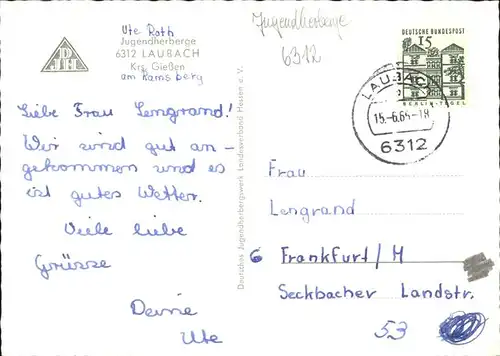 Ute Roth
Jugendherberge
6312 LAUBACH
Krs. Gießen
am Ramsberg
Liebe Frau Lengrand!
Wir sind gut an-
gekommen und es
ist gutes Wetter.
Viele liebe
Grüsse
Deine
Ute
Deutsches Jugendherbergswerk Landesverband Hessen e. V.
Jugendherberge
6312
DEUTSCHE BUNDESPOST
15
BERLIN-TEGEL
LAUBACH
15.-6.65-18
6312
Frau
Lengrand
6 Frankfurt/M
Seckbacher Landstr.
53